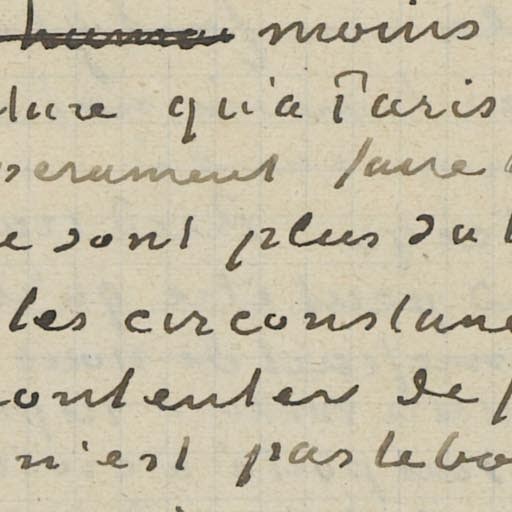 moins
dure qu'à Paris
faire
e sont plus
les circonstanc
contenter de p
n'est pas le bo